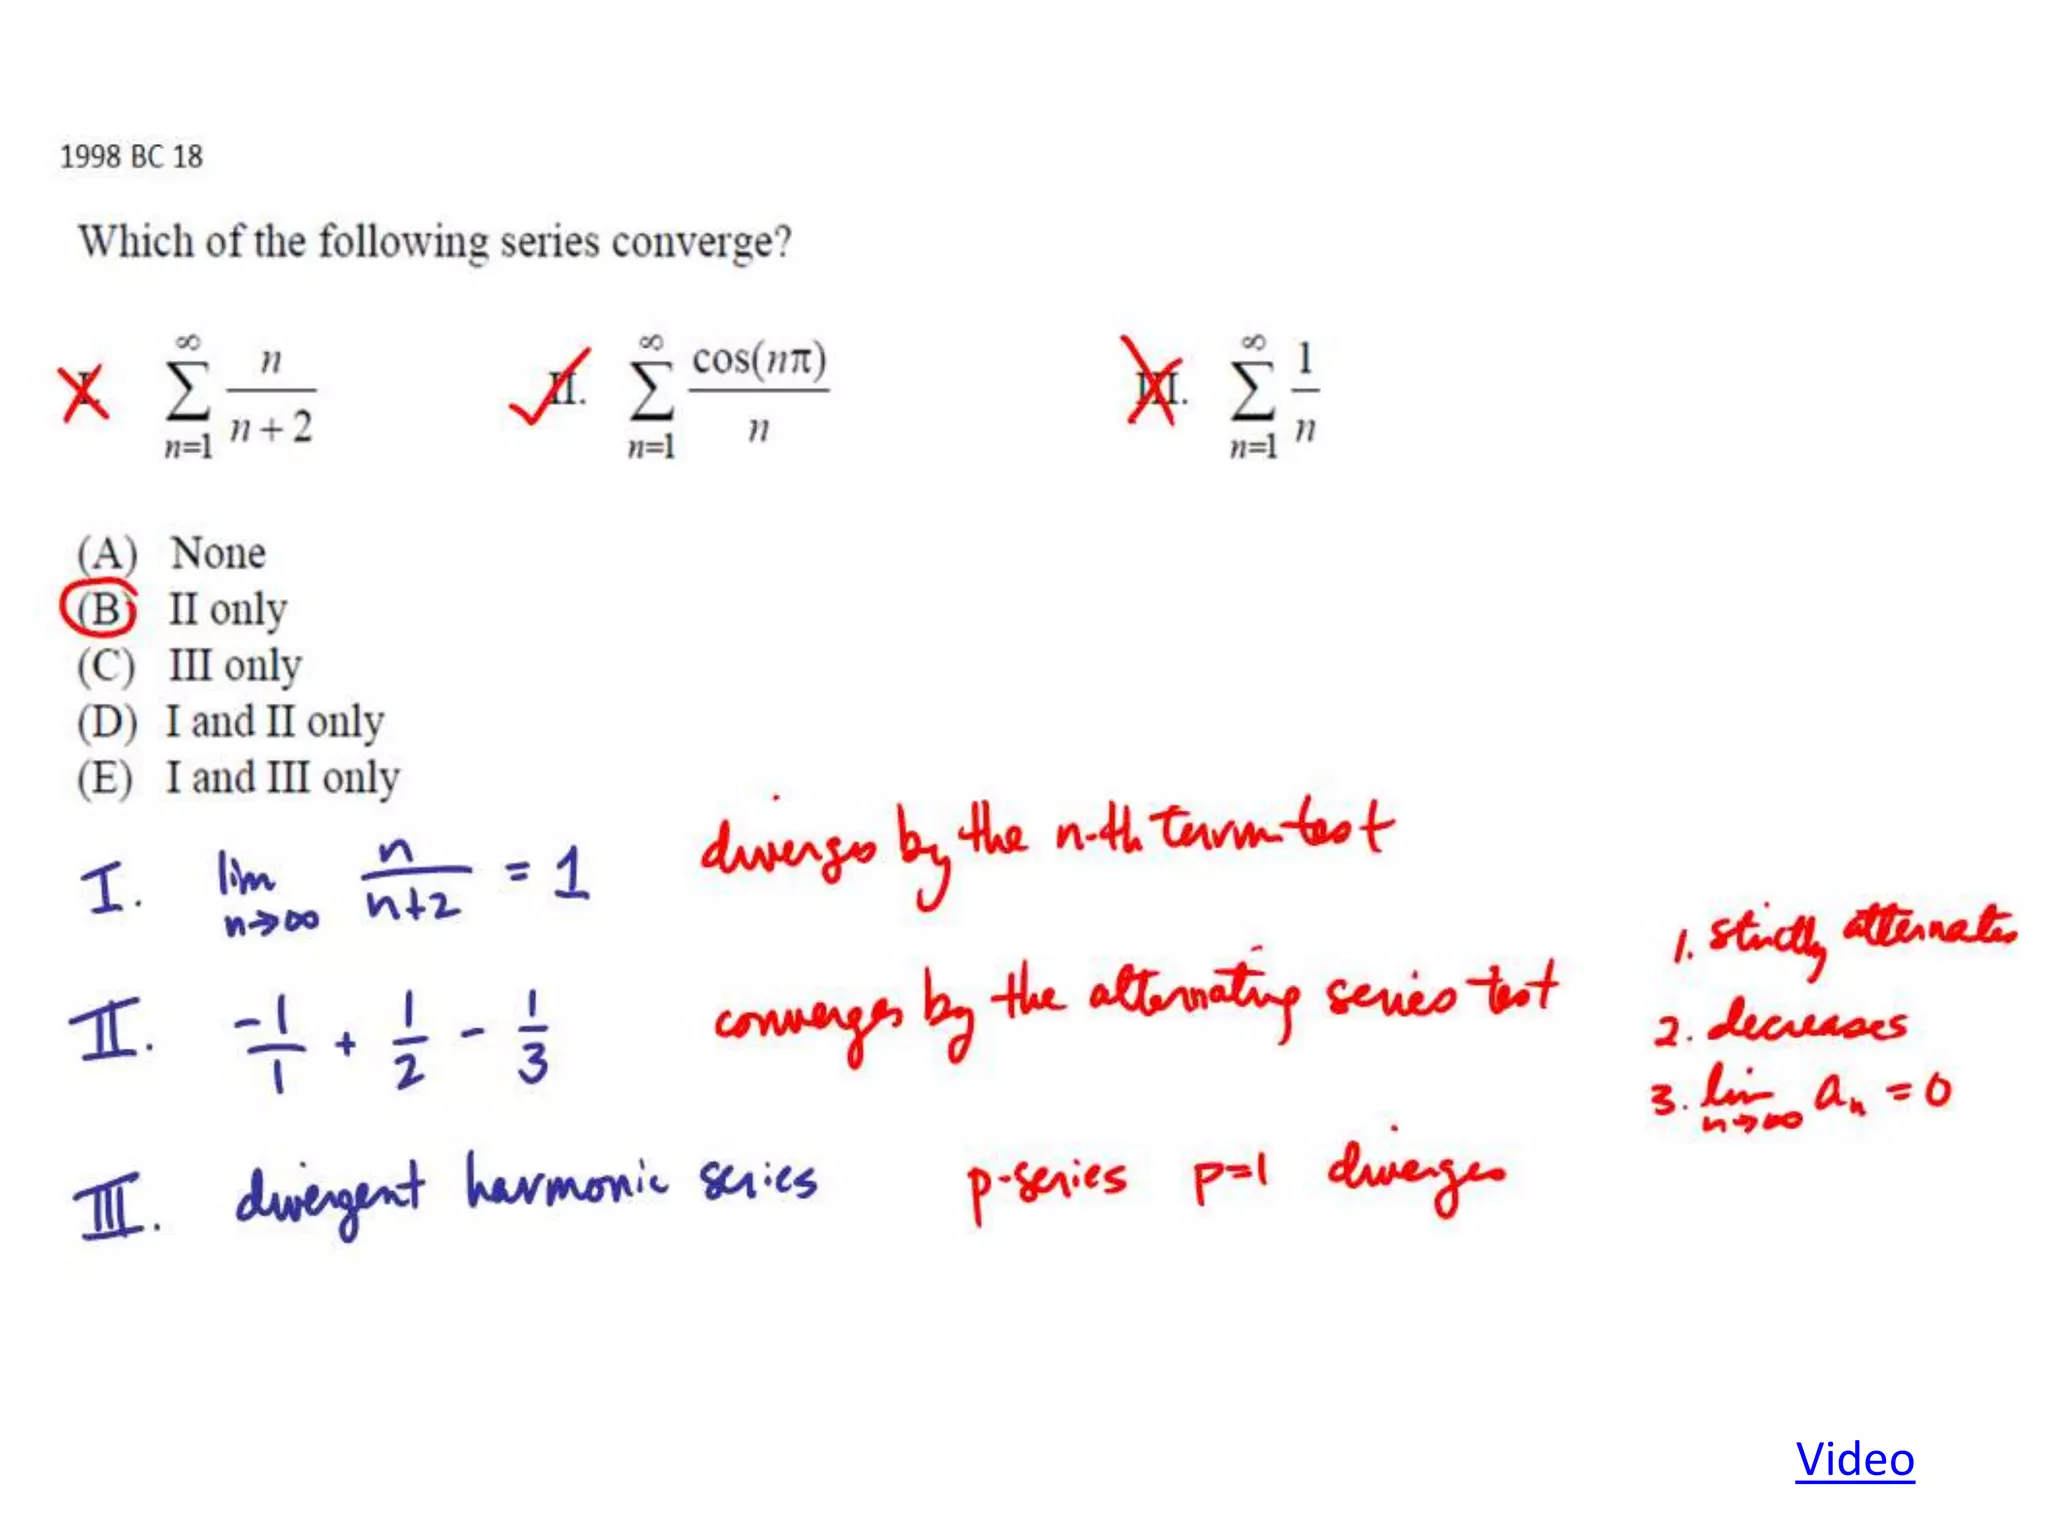 1998 BC 18
Which of the following series converge?
I. ∑_{n=1}^{∞} n/(n+2)   II. ∑_{n=1}^{∞} cos(nπ)/n   III. ∑_{n=1}^{∞} 1/n
(A) None
(B) II only
(C) III only
(D) I and II only
(E) I and III only
I. lim_{n→∞} n/(n+2) = 1   diverges by the n-th term test
II. -1/1 + 1/2 - 1/3   converges by the alternating series test
1. strictly alternates
2. decreases
3. lim_{n→∞} a_n = 0
III. divergent harmonic series   p-series p=1 diverges
Video